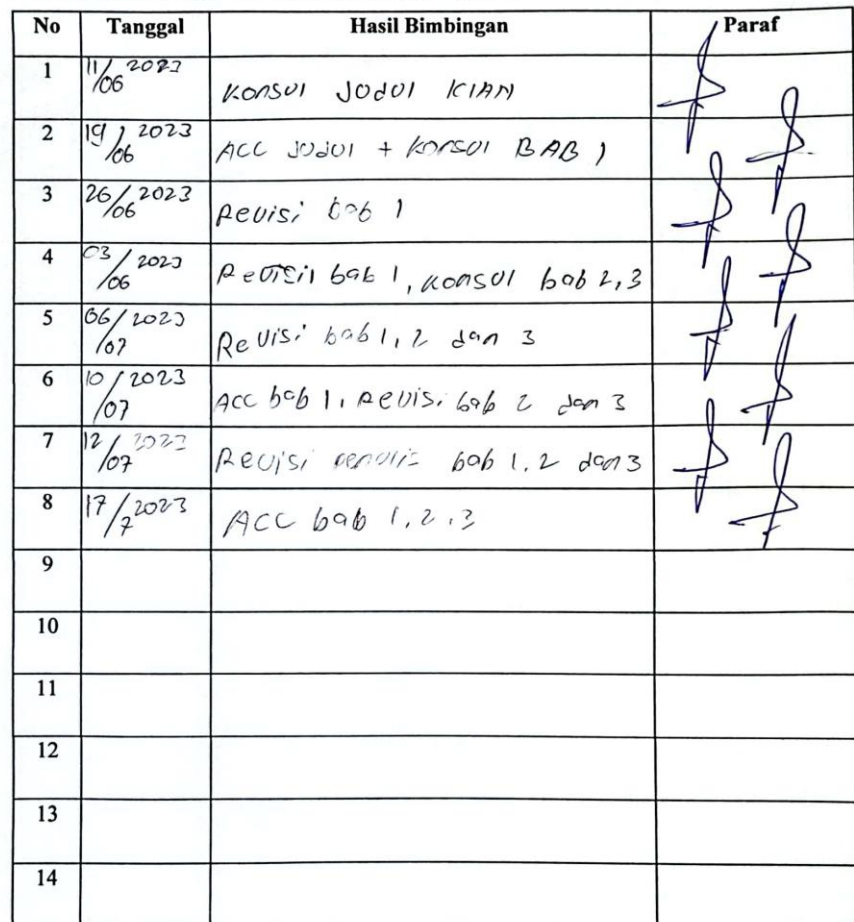 No Tanggal Hasil Bimbingan Paraf
1 11/06 2023 Konsul Judul KIAN
2 19/06 2023 ACC Judul + Konsul BAB 1
3 26/06 2023 Revisi bab 1
4 03/06 2023 Revisi bab 1, Konsul bab 2,3
5 06/07 2023 Revisi bab 1, 2 dan 3
6 10/07 2023 Acc bab 1, Revisi bab 2 dan 3
7 12/07 2023 Revisi bab 1, 2 dan 3
8 17/7 2023 ACC bab 1, 2, 3
9
10
11
12
13
14